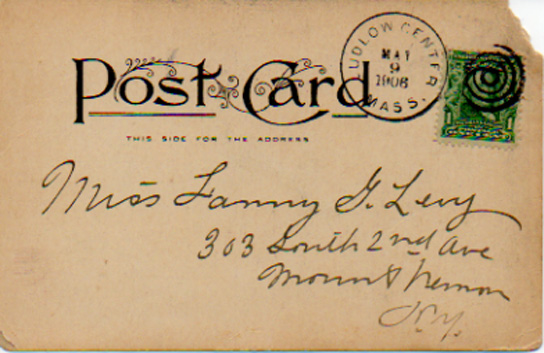 Post Card
THIS SIDE FOR THE ADDRESS
LUDLOW CENTER
MAY
9
1906
MASS.
1 1
Miss Fanny G. Levy
303 South 2nd Ave
Mount Vernon
N.Y.